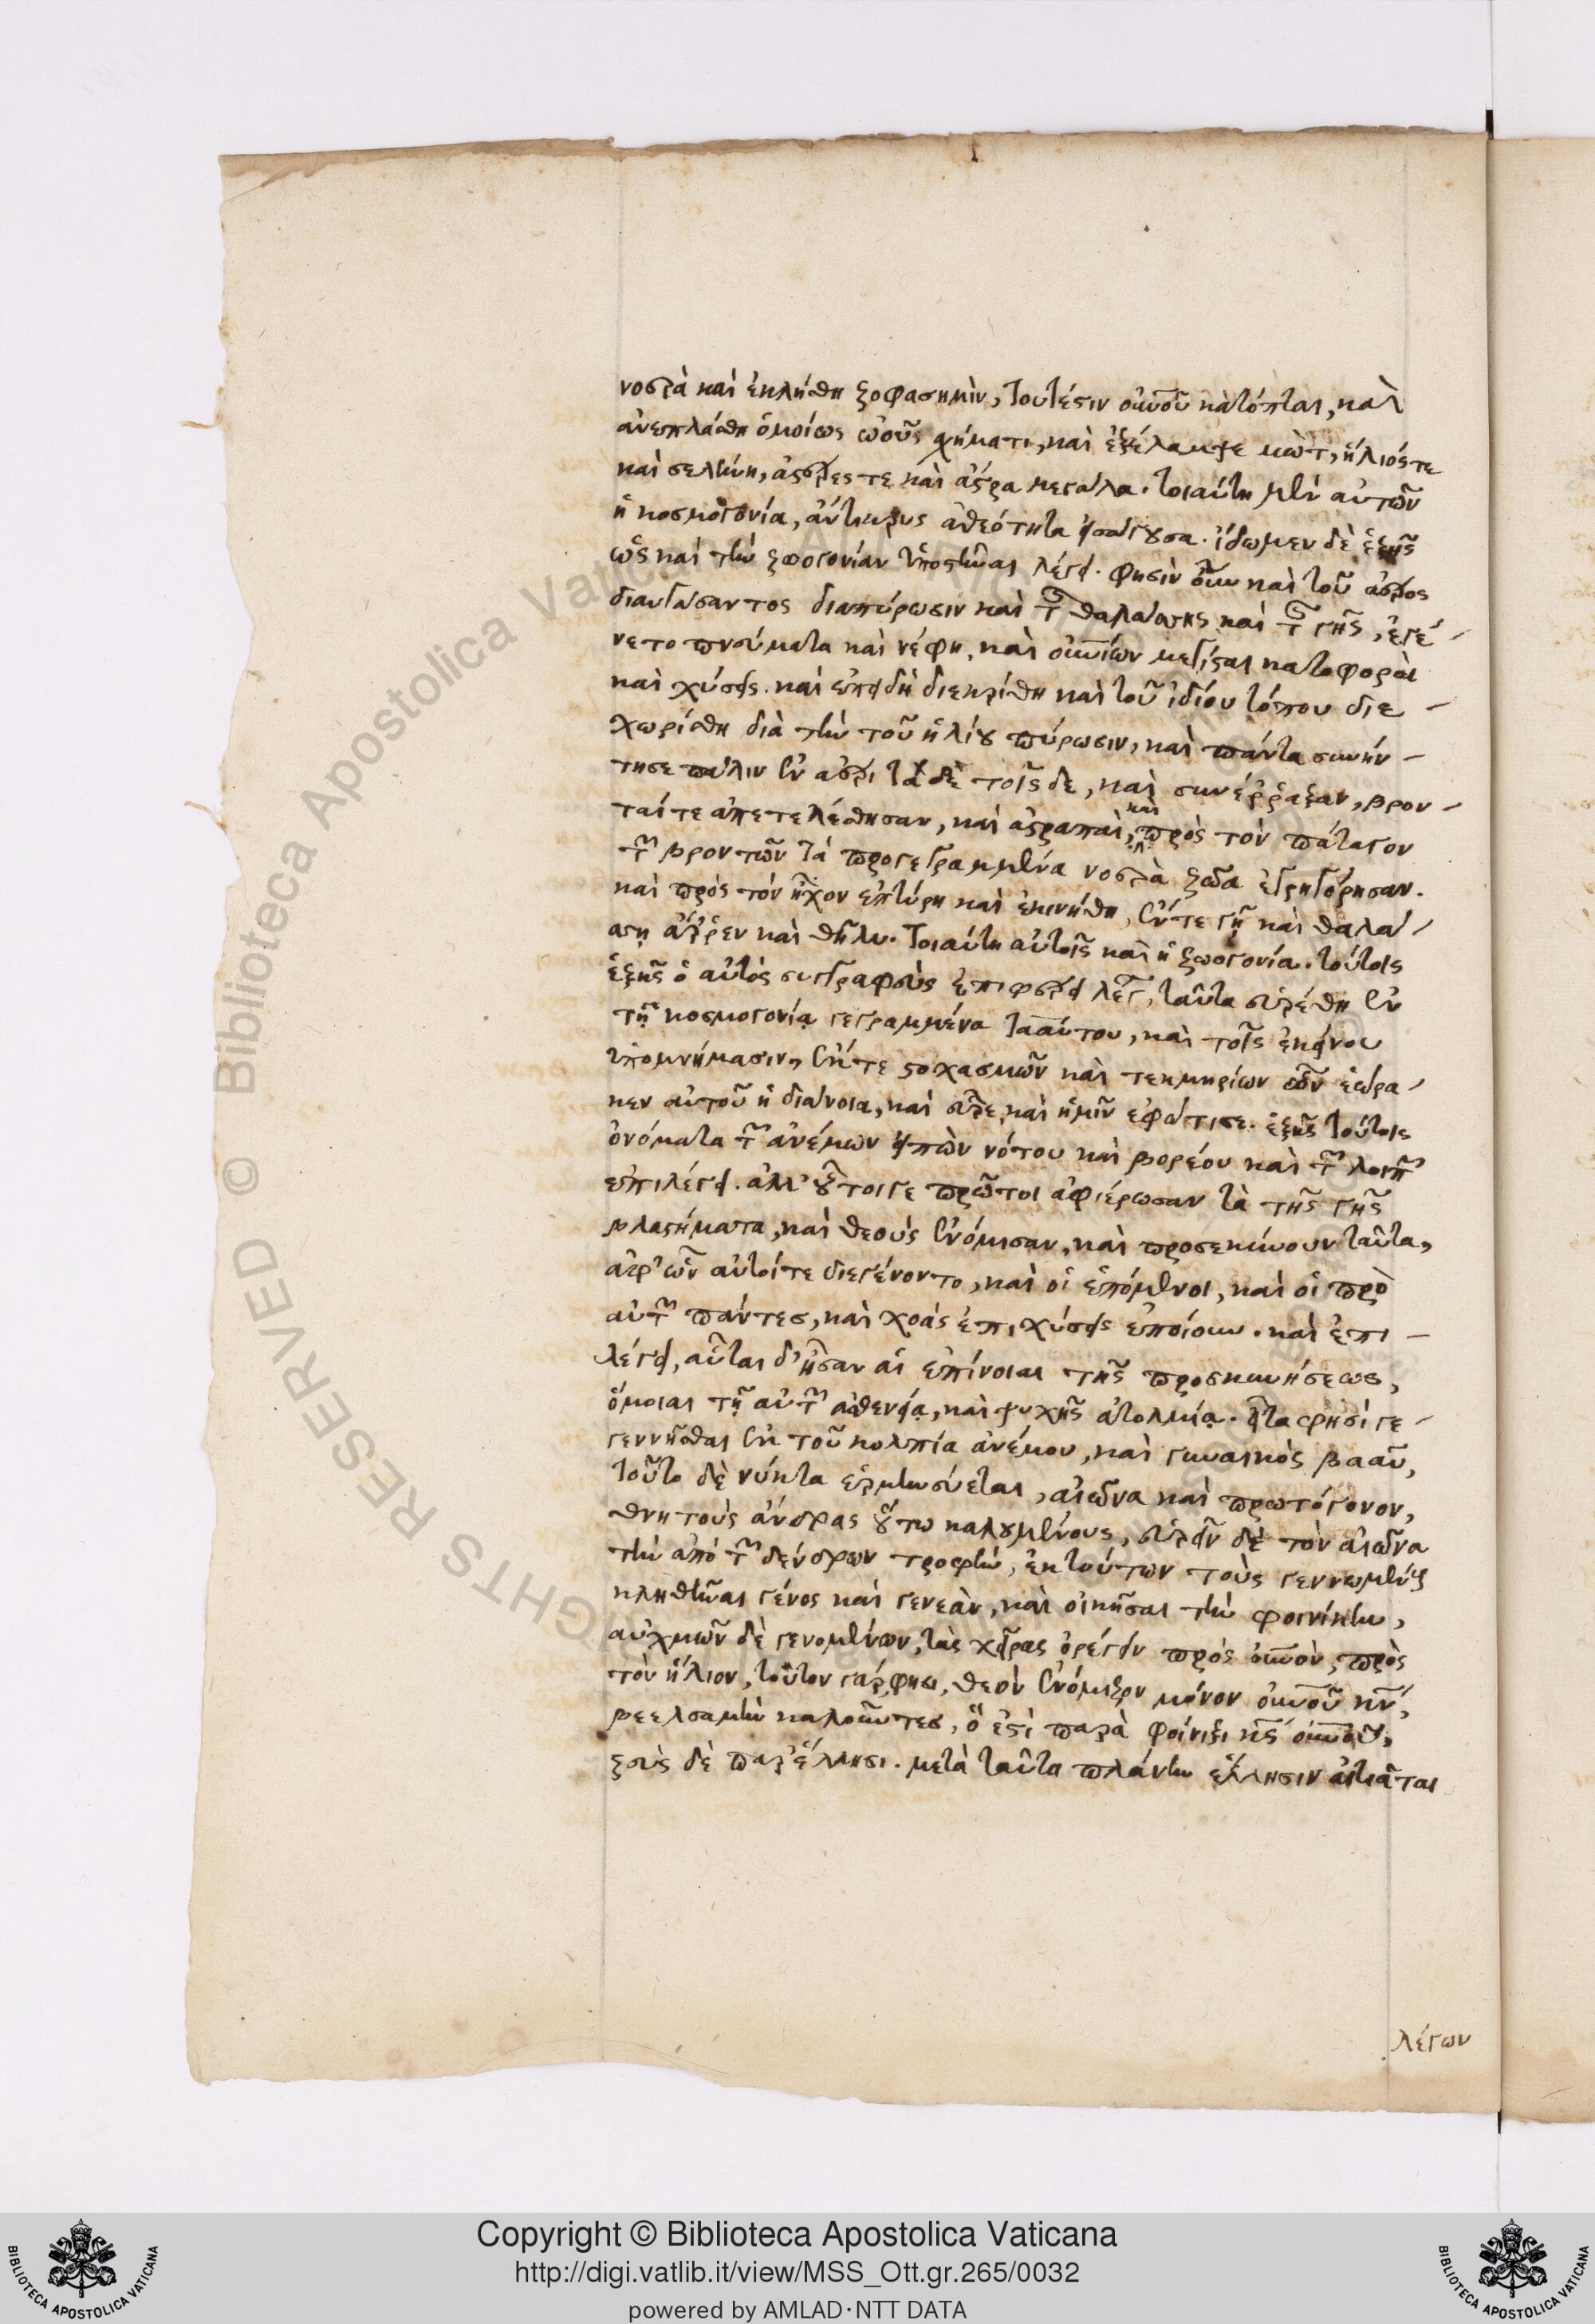 νοερὰ καὶ ἐκλήθη ζοφασημὶν, τουτέστιν οὐνοῦ κατόπται, καὶ
ἀνεπλάσθη ὁμοίως ὠοῦ σχήματι, καὶ ἐξέλαμψε μὼτ, ἥλιός τε
καὶ σελήνη, ἀστέρες τε καὶ ἄστρα μεγάλα. τοιαύτη μὲν αὐτῶν
ἡ κοσμογονία, ἄντικρυς ἀθεότητα εἰσάγουσα. ἴδωμεν δὲ ἑξῆς
ὡς καὶ τὴν ζωογονίαν ὑποστῆναι λέγει. φησὶν οὖν καὶ τοῦ ἀέρος
διαυγάσαντος διαπύρωσιν καὶ τ θαλάσσης καὶ τ γῆς, ἐγέ-
νετο πνεύματα καὶ νέφη, καὶ οὐνίων μεγίσται καταφοραὶ
καὶ χύσεις. καὶ ἐπειδὴ διεκρίθη καὶ τοῦ ἰδίου τόπου διε-
χωρίσθη διὰ τὴν τοῦ ἡλίου πύρωσιν, καὶ πάντα συνήν-
τησε πάλιν ἐν ἀέρι τάδε τοῖς δε, καὶ συνέρραξαν, βρον-
ταί τε ἀπετελέσθησαν, καὶ ἀστραπαὶ, καὶ πρὸς τὸν πάταγον
τ βροντῶν τὰ προγεγραμμένα νοερὰ ζῶα ἐγρηγόρησαν.
καὶ πρὸς τὸν ἦχον ἐπτύρη καὶ ἐκινήθη, ἔν τε γῇ καὶ θαλά-
σσῃ ἄρρεν καὶ θῆλυ. τοιαύτη αὐτοῖς καὶ ἡ ζωογονία. τούτοις
ἑξῆς ὁ αὐτὸς συγγραφεὺς ἐπιφέρει λέγ, ταῦτα εὑρέθη ἐν
τῇ κοσμογονίᾳ γεγραμμένα τααύτου, καὶ τοῖς ἐκείνου
ὑπομνήμασιν, ἔκ τε στοχασμῶν καὶ τεκμηρίων ὧν ἑώρα-
κεν αὐτοῦ ἡ διάνοια, καὶ εὗρε, καὶ ἡμῖν ἐφώτισε. ἑξῆς τούτοις
ὀνόματα τ ἀνέμων εἰπὼν νότου καὶ βορέου καὶ τ λοιπ
ἐπιλέγει. ἀλλ' οὗτοί γε πρῶτοι ἀφιέρωσαν τὰ τῆς γῆς
βλαστήματα, καὶ θεοὺς ἐνόμισαν, καὶ προσεκύνουν ταῦτα,
ἀφ' ὧν αὐτοί τε διεγένοντο, καὶ οἱ ἑπόμενοι, καὶ οἱ πρὸ
αὐτ πάντες, καὶ χοὰς ἐπιχύσεις ἐποίουν. καὶ ἐπι-
λέγει, αὗται δ' ἦσαν αἱ ἐπίνοιαι τῆς προσκυνήσεως,
ὅμοιαι τῇ αὐτ ἀσθενείᾳ, καὶ ψυχῆς ἀτολμίᾳ. εἶτα φησί γε-
γεννῆσθαι ἐκ τοῦ κολπία ἀνέμου, καὶ γυναικὸς βααῦ,
τοῦτο δὲ νύκτα ἑρμηνεύεται, αἰῶνα καὶ πρωτόγονον,
θνητοὺς ἄνδρας οὕτω καλουμένους, εὑρεῖν δὲ τὸν αἰῶνα
τὴν ἀπὸ τ δένδρων τροφὴν, ἐκ τούτων τοὺς γεννωμένους
κληθῆναι γένος καὶ γενεὰν, καὶ οἰκῆσαι τὴν φοινίκην,
αὐχμῶν δὲ γενομένων, τὰς χεῖρας ὀρέγειν πρὸς οὐνὸν, πρὸς
τὸν ἥλιον, τοῦτον γάρ, φησι, θεὸν ἐνόμιζον μόνον οὐνοῦ κν,
βεελσαμὴν καλοῦντες, ὅ ἐστι παρὰ φοίνιξι κς οὐνοῦ,
ζεὺς δὲ παρ' ἕλλησι. μετὰ ταῦτα πλάνην ἕλλησιν αἰτιᾶται
λέγων
Copyright © Biblioteca Apostolica Vaticana
http://digi.vatlib.it/view/MSS_Ott.gr.265/0032
powered by AMLAD·NTT DATA